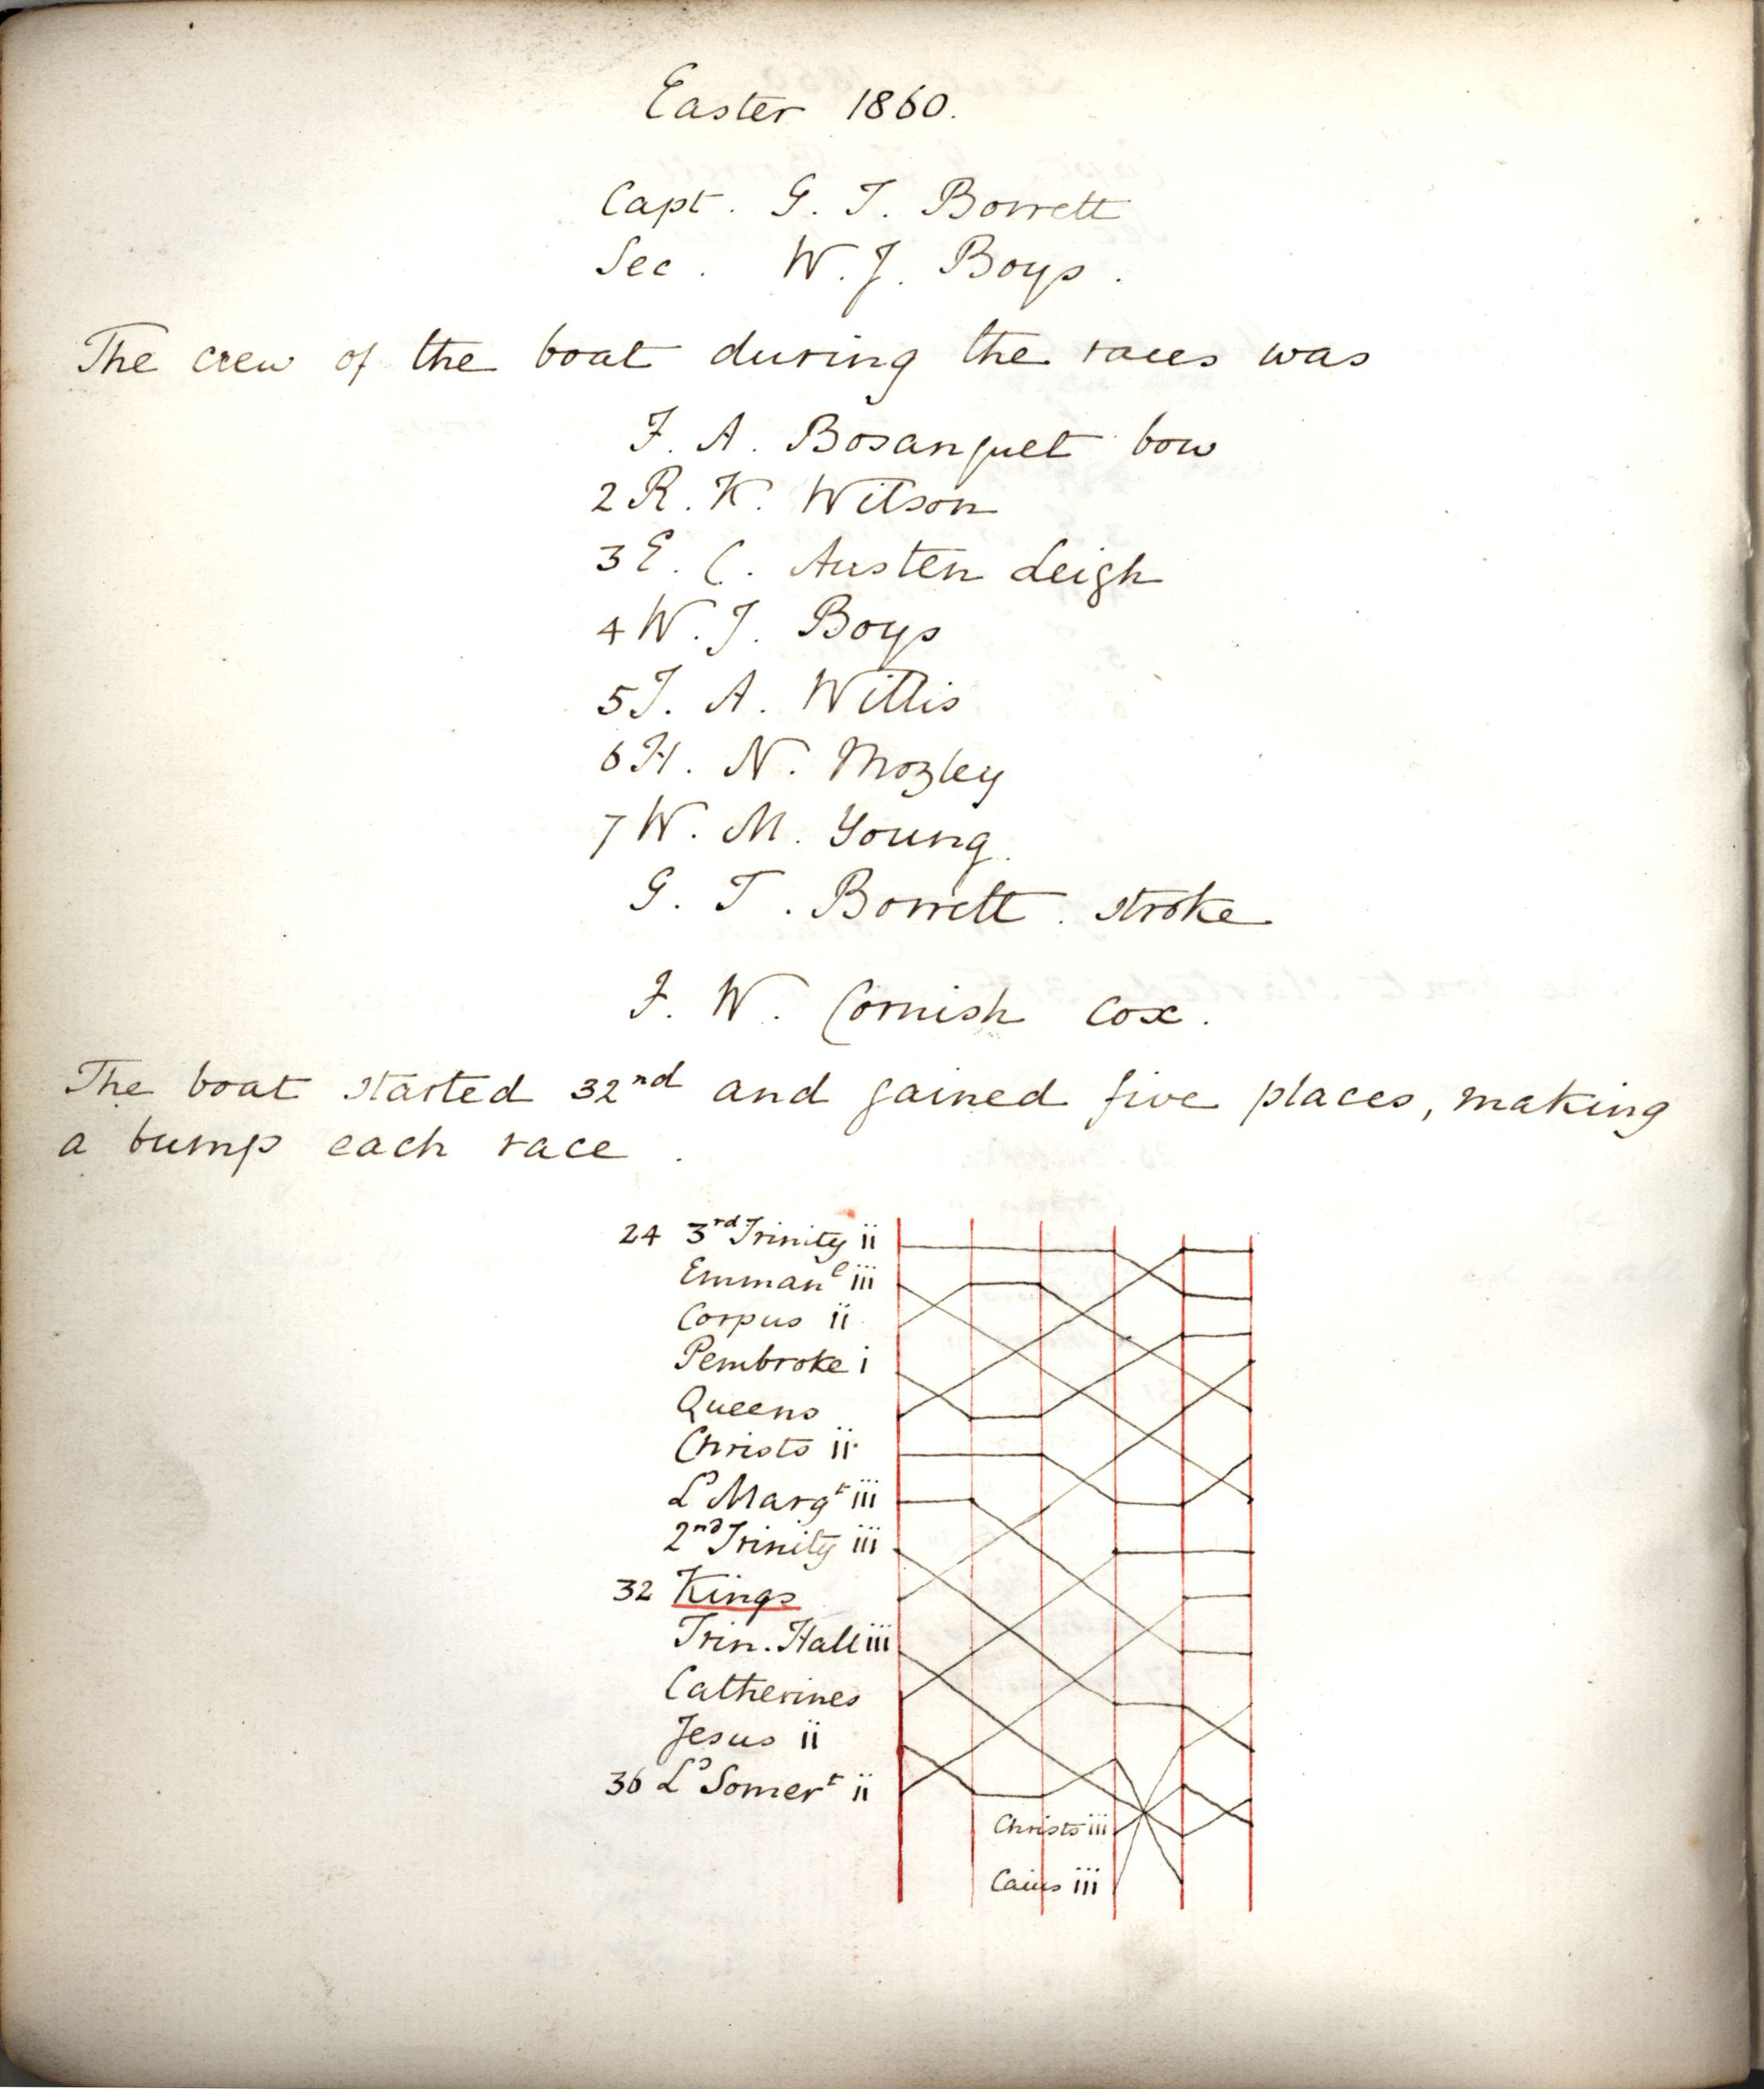 Easter 1860.
Capt. G. T. Borrett
Sec. W. J. Boys.
The crew of the boat during the races was
F. A. Bosanquet bow
2 R. K. Wilson
3 E. C. Austen Leigh
4 W. J. Boys
5 J. A. Willis
6 H. N. Mozley
7 W. M. Young.
G. T. Borrett. stroke
F. W. Cornish cox.
The boat started 32nd and gained five places, making
a bump each race.
24 3rd Trinity ii
Emmanl iii
Corpus ii
Pembroke i
Queens
Christs ii
LD Margt iii
2nd Trinity iii
32 Kings
Trin. Hall iii
Catherines
Jesus ii
36 LD Somert ii
Christs iii
Caius iii